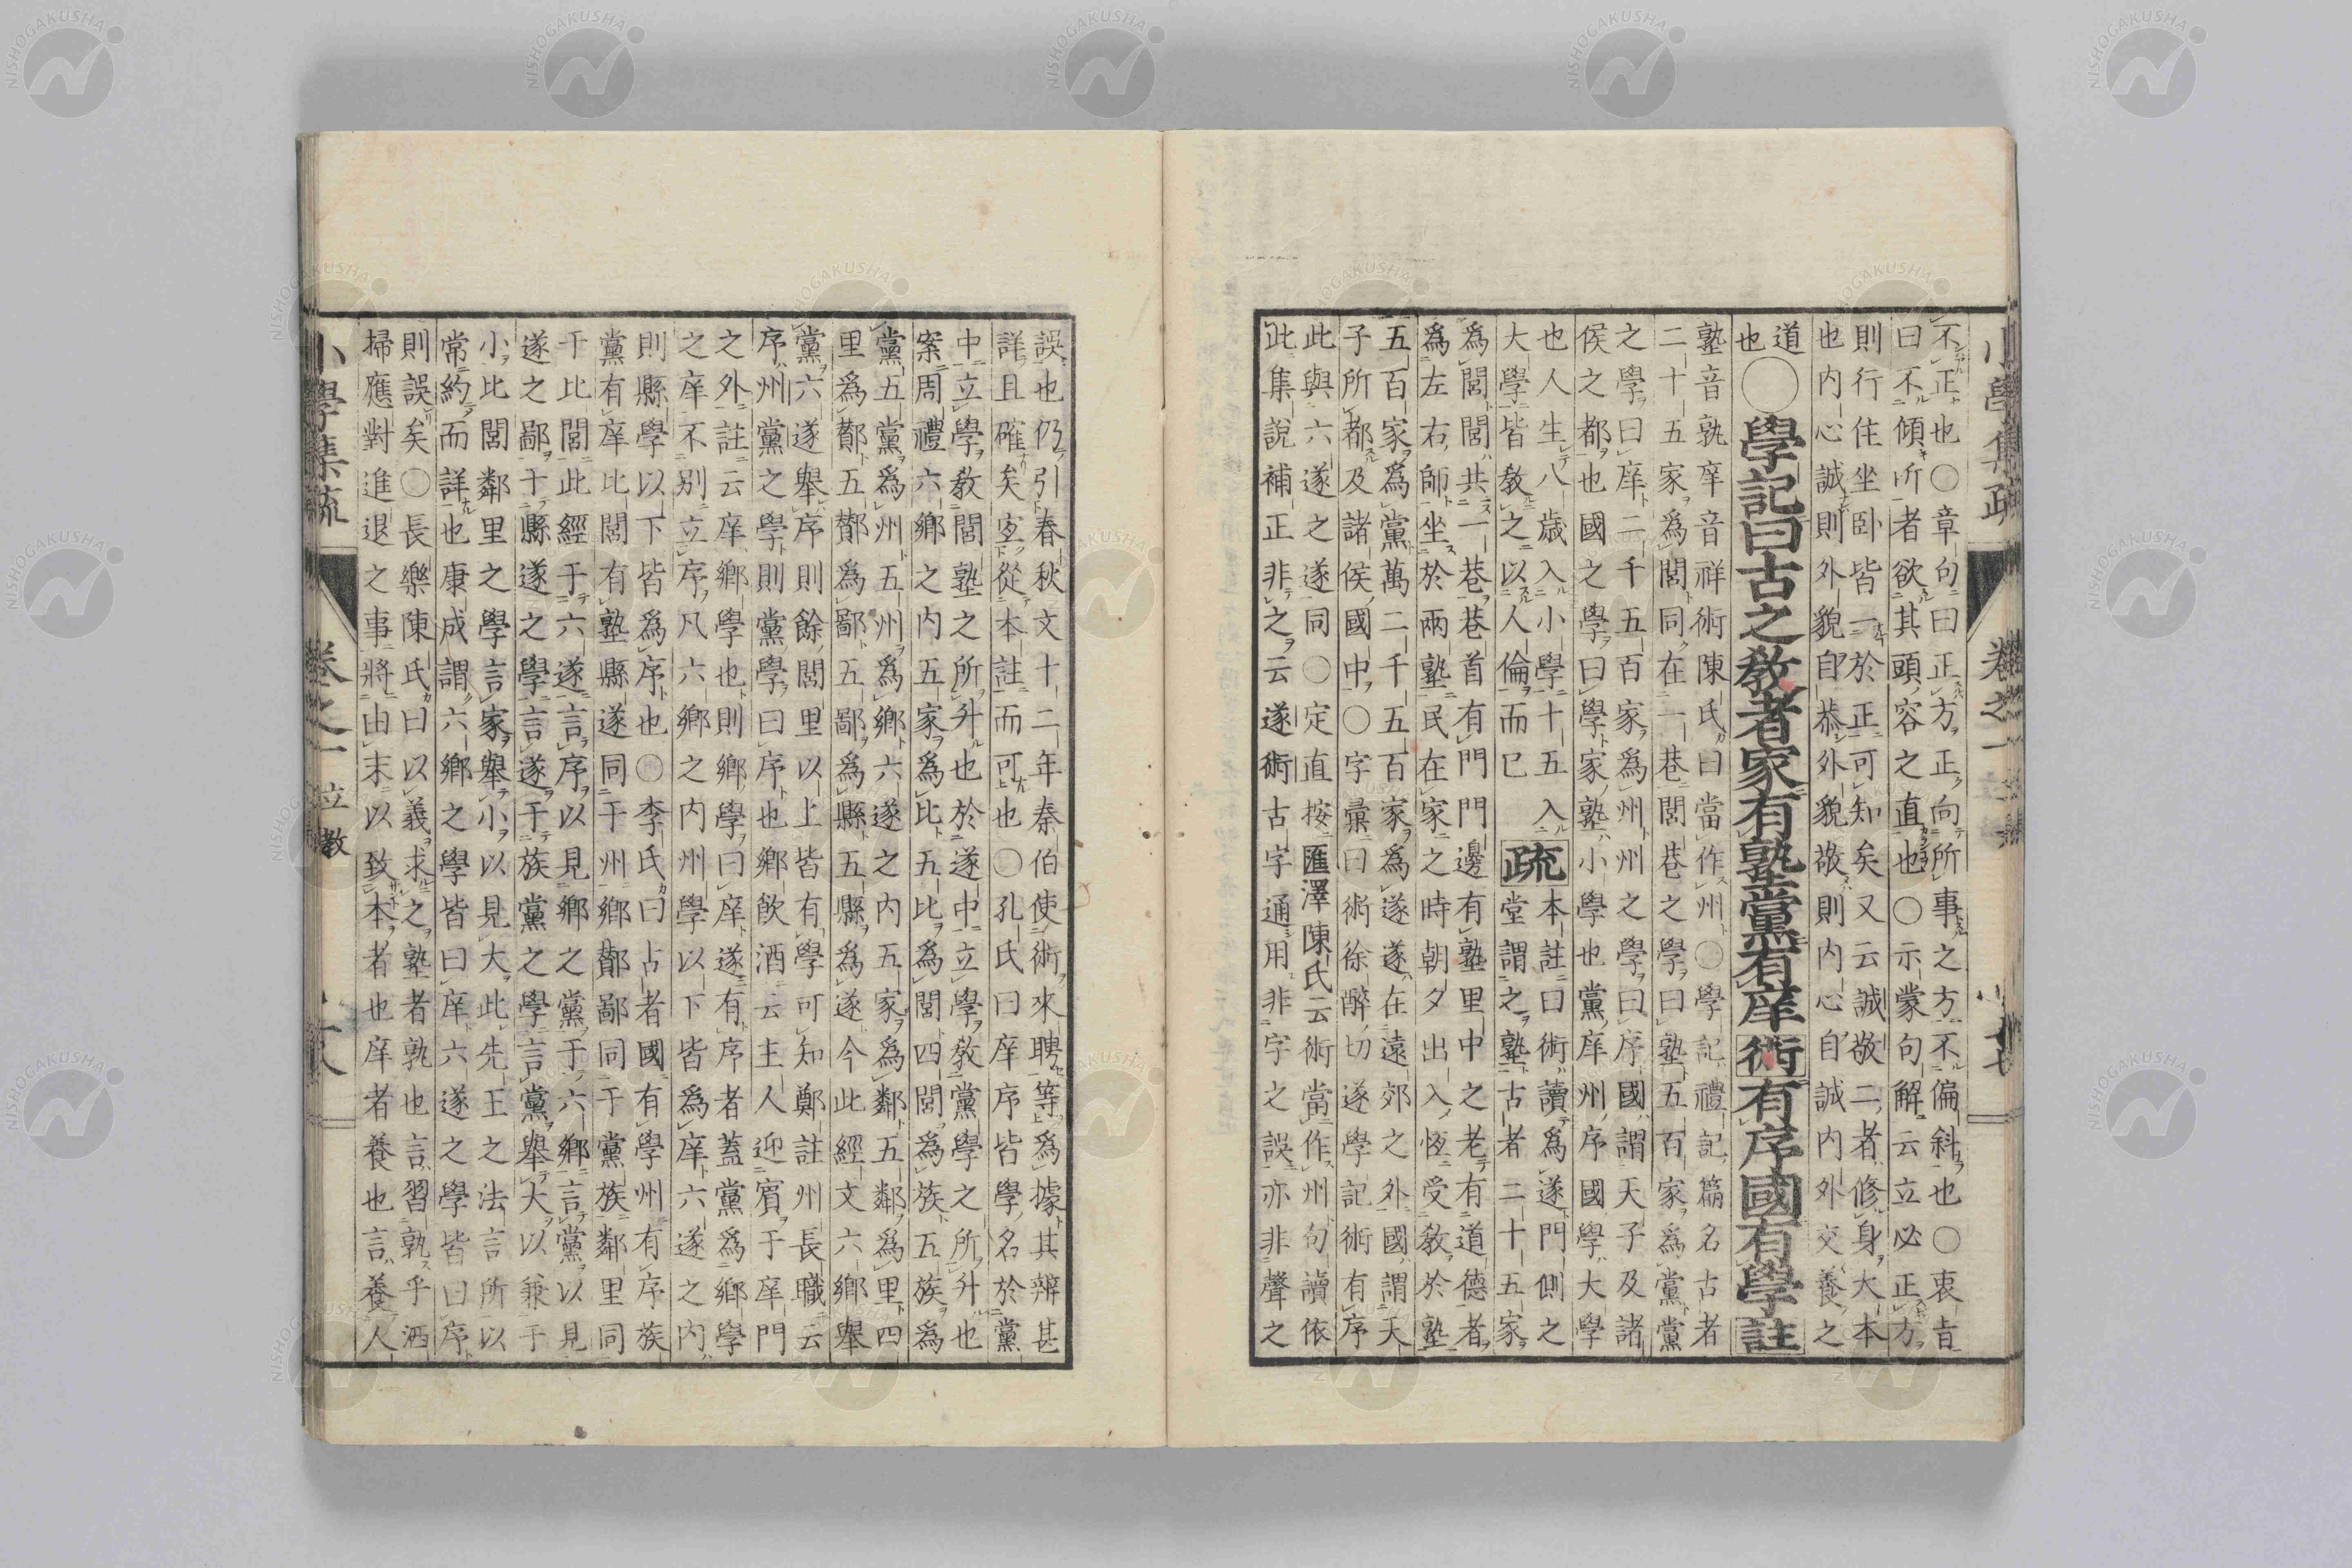 不正也○章句曰正方正向所事之方不偏斜也○衷旨
曰不傾听者欲其頭容之直也○示蒙句解云立必正方
則行住坐卧皆一於正可知矣又云誠敬二者修身大本
也内心誠則外貌自恭外貌敬則内心自誠内外交養之
道
也○學記曰古之教者家有塾黨有庠術有序國有學註
塾音孰庠音祥術陳氏曰當作州○學記禮記篇名古者
二十五家爲閭同在一巷閭巷之學曰塾五百家爲黨黨
之學曰庠二千五百家爲州州之學曰序國謂天子及諸
侯之都也國之學曰學家塾小學也黨庠州序國學大學
也人生八歳入小學十五入
大學皆教之以人倫而已
疏
本註曰術讀爲遂門側之
堂謂之塾古者二十五家
爲閭閭共一巷巷首有門門邊有塾里中之老有道德者
爲左右師坐於兩塾民在家之時朝夕出入恆受教於塾
五百家爲黨萬二千五百家爲遂遂在遠郊之外國謂天
子所都及諸侯國中○字彙曰術徐醉切遂學記術有序
此與六遂之遂同○定直按匯澤陳氏云術當作州句讀依
此集說補正非之云遂術古字通用非字之誤亦非聲之
誤也仍引春秋文十二年秦伯使術來聘等爲據其辨甚
詳且確矣宜從本註而可也○孔氏曰庠序皆學名於黨
中立學教閭塾之所升也於遂中立學教黨學之所升也
案周禮六鄉之内五家爲比五比爲閭四閭爲族五族爲
黨五黨爲州五州爲鄉六遂之内五家爲鄰五鄰爲里四
里爲酇五酇爲鄙五鄙爲縣五縣爲遂今此經文六鄉舉
黨六遂舉序則餘閭里以上皆有學可知鄭註州長職云
序州黨之學則黨學曰序也鄉飲酒云主人迎賓于庠門
之外註云庠鄉學也則鄉學曰庠遂有序者蓋黨爲鄉學
之庠不別立序凡六鄉之内州學以下皆爲庠六遂之内
則縣學以下皆爲序也○李氏曰古者國有學州有序族
黨有庠比閭有塾縣遂同于州鄉酇鄙同于黨族鄰里同
于比閭此經于六遂言序以見鄉之黨于六鄉言黨以見
遂之鄙于縣遂之學言遂于族黨之學言黨舉大以兼于
小比閭鄰里之學言家舉小以見大此先王之法言所以
常約而詳也康成謂六鄉之學皆曰庠六遂之學皆曰序
則誤矣○長樂陳氏曰以義求之塾者孰也言習孰乎洒
掃應對進退之事將由末以致本者也庠者養也言養人
小學集疏 卷之一 立教